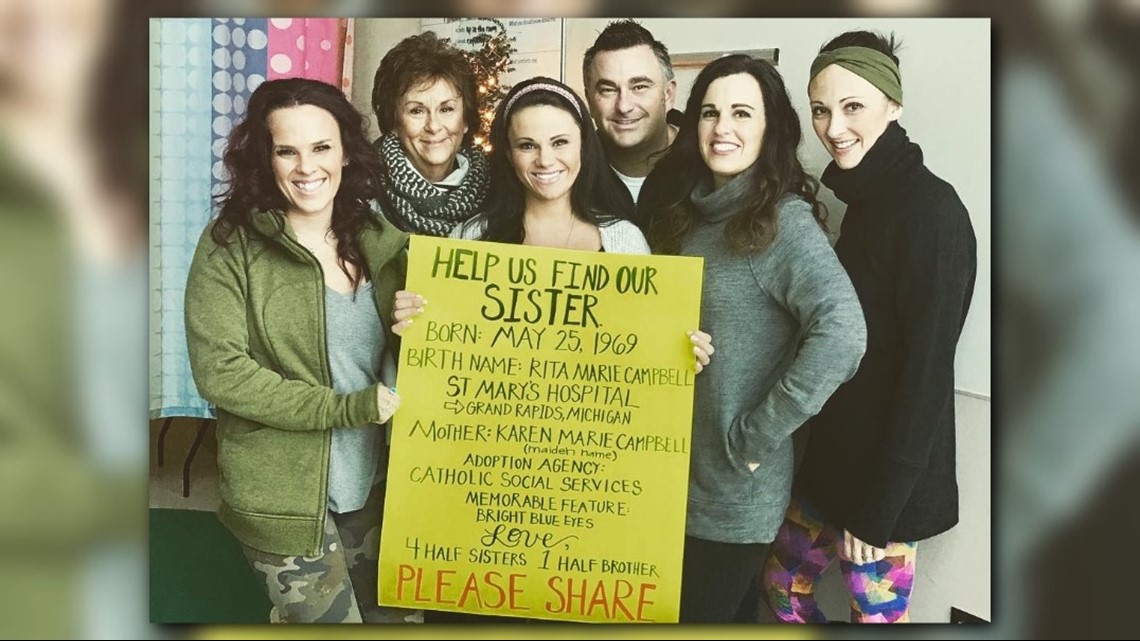 HELP US FIND OUR
SISTER.
BORN: MAY 25, 1969
BIRTH NAME: RITA MARIE CAMPBELL
ST MARY'S HOSPITAL
⇨ GRAND RAPIDS, MICHIGAN
MOTHER: KAREN MARIE CAMPBELL
(maiden name)
ADOPTION AGENCY:
CATHOLIC SOCIAL SERVICES
MEMORABLE FEATURE:
BRIGHT BLUE EYES
Love,
4 HALF SISTERS 1 HALF BROTHER
PLEASE SHARE